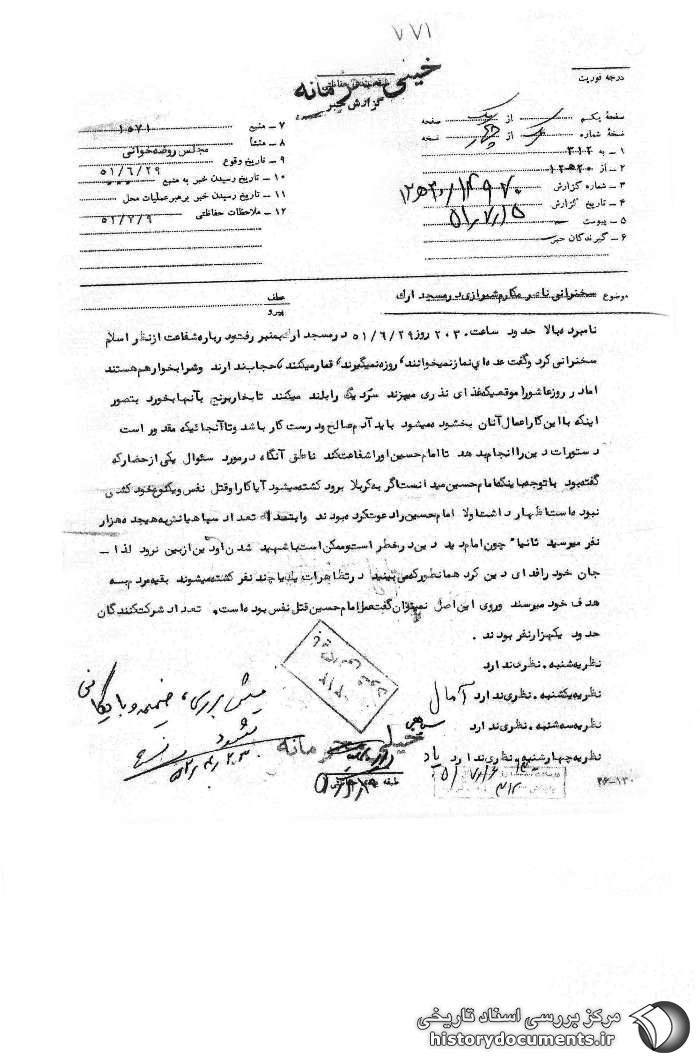 ۷۷۱
خیلی محرمانه
گزارش خبر
درجه فوریت
صفحهٔ یکم از یک صفحه
نسخهٔ شماره از چهار نسخه
۱ - به ۳۱۲
۲ - از ۲۰ه۱۲
۳ - شماره گزارش ۱۲ه۲۰/۱۴۹۷۰
۴ - تاریخ گزارش ۵۱٫۷٫۱۵
۵ - پیوست
۶ - گیرندگان خبر
۷ - منبع ۱۵۷۱
۸ - منشأ مجلس روضه‌خوانی
۹ - تاریخ وقوع ۵۱/۶/۲۹
۱۰ - تاریخ رسیدن خبر به منبع
۱۱ - تاریخ رسیدن خبر برهبر عملیات محل
۱۲ - ملاحظات حفاظتی ۵۱/۷/۹
موضوع سخنرانی ناصر مکارم شیرازی در مسجد ارک
عطف
پیرو
نامبرده بالا حدود ساعت ۲۰۳۰ روز ۵۱/۶/۲۹ در مسجد ارک بمنبر رفت و درباره شفاعت از نظر اسلام
سخنرانی کرد و گفت عده ای نماز نمیخوانند، روزه نمیگیرند، قمار میکنند، حجاب ندارند و شرابخوار هم هستند
اما در روز عاشورا موقعیکه غذای نذری میپزند سر دیگ را بلند میکنند تا بخار برنج بآنها بخورد بتصور
اینکه با این کار اعمال آنان بخشوده میشود باید آدم صالح و درست کار باشد و تا آنجائیکه مقدور است
دستورات دین را انجام بدهد تا امام حسین او را شفاعت کند ناطق آنگاه در مورد سئوال یکی از حضار که
گفته بود با توجه باینکه امام حسین میدانست اگر به کربلا برود کشته میشود آیا کار او قتل نفس و یکنوع خود کشی
نبوده است اظهار داشت اولا امام حسین را دعوت کرده بودند و ابتدا تعداد سپاهیانش به هیجده هزار
نفر میرسید ثانیا چون امام دید دین در خطر است و ممکن است با شهید شدن او دین از بین نرود لذا -
جان خود را فدای دین کرد همانطور که می بینید در تظاهرات یک یا چند نفر کشته میشوند بقیه مردم به
هدف خود میرسند وروی این اصل نمیتوان گفت عمل امام حسین قتل نفس بوده است. تعداد شرکت کنندگان
حدود یکهزار نفر بودند.
نظریه شنبه. نظری ندارد
نظریه یکشنبه. نظری ندارد آمال
نظریه سه شنبه. نظری ندارد
نظریه چهارشنبه. نظری ندارد
خیلی محرمانه
طبقه بندی حفاظتی
۳۱۲
۴۶-۱۳۰
مرکز بررسی اسناد تاریخی
historydocuments.ir